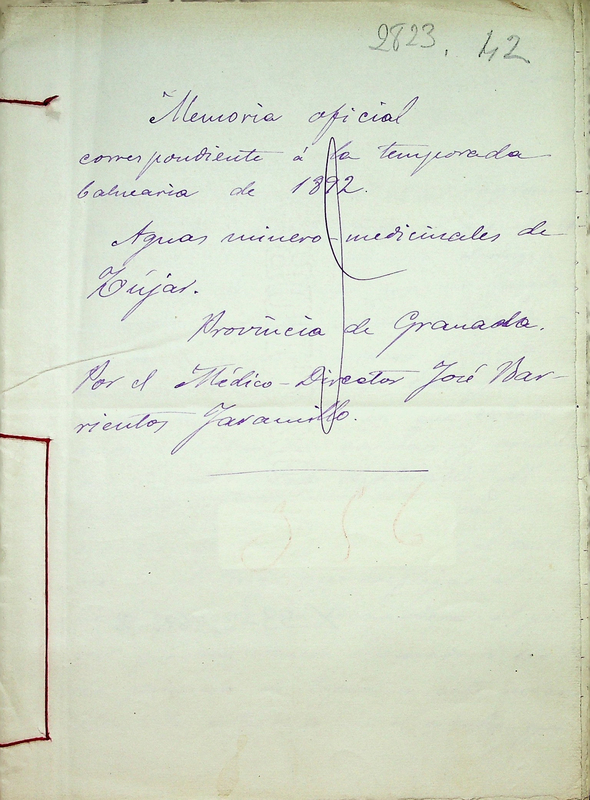 2823. 42
Memoria oficial
correspondiente á la temporada
balnearia de 1892.
Aguas minero-medicinales de
Zújar.
Provincia de Granada.
Por el Médico-Director José Bar-
rientos Jaramillo.